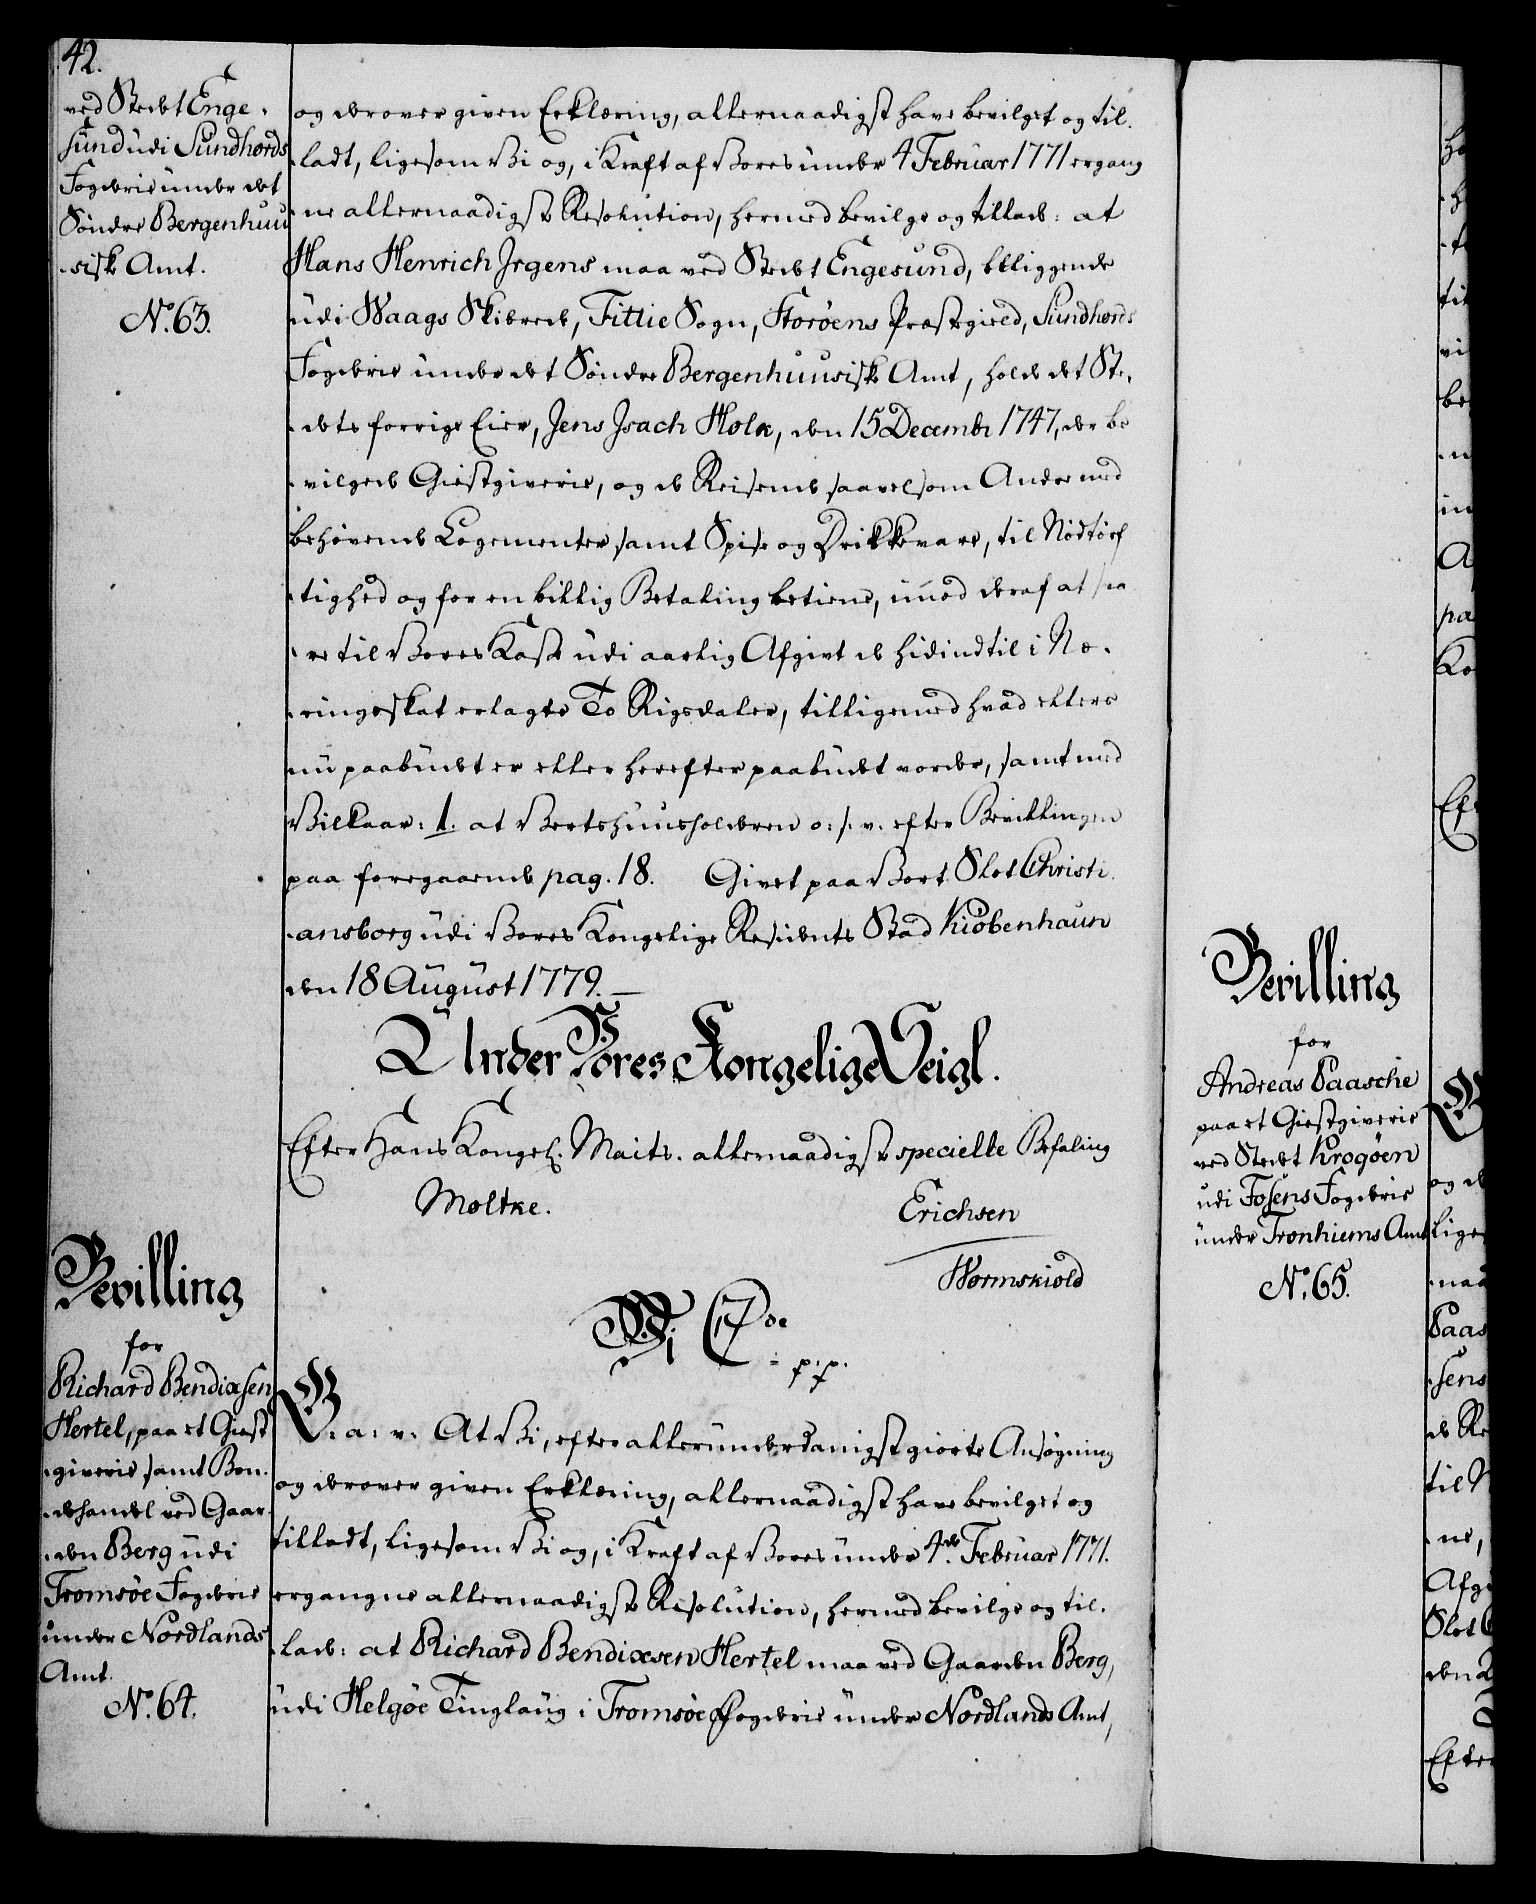 42.
ved Stedet Enge-
sund udi Sundhords
Fogderie under det
Søndre Bergenhuu
-siske Amt.
No. 63.
og derover given Erklæring, allernaadigst have bevilget og til-
ladt, ligesom Vi og, i Kraft af Vores under 4 Februar 1771 ergang
-ne allernaadigste Resolution, hermed bevilge og tillade: at
Hans Henrich Irgens maa ved Stedet Engesund, beliggende
udi Waags Skibrede, Fittie Sogn, Storøens Præstegield, Sundhords
Fogderie under det Søndre Bergenhuusiske Amt, holde det Ste-
-dets forrige Eier, Jens Isach Holck, den 15 Decembr 1747, der be
-vilgede Giestgiverie, og de Reisende saavelsom Andre med
behøvende Logementer samt Spise og Drikkevare, til Nødtørf
-tighed og for en billig Betaling betiene, imod deraf at sva
-re til Vores Kasse udi aarlig Afgivt de hidindtil i Næ-
-ringsskat erlagte To Rigsdaler, tilligemed hvad ellers
nu paabudet er eller herefter paabudet vorder, samt med
Vilkaar: 1. at Vertshuusholderen o: s: v: efter Bevillingen
paa foregaaende pag. 18. Givet paa Vort Slot Christi-
-ansborg udi Vores Kongelige Residents Stad Kiøbenhavn
den 18 August 1779. —
Under Vores Kongelige Seigl.
Efter Hans Kongel. Maits. allernaadigste specielle Befaling
Moltke.
Erichsen
Wormskiold
Bevilling
for
Richard Bendixsen
Hertel, paa et Giest
-giverie samt Bon-
-dehandel ved Gaar-
-den Berg udi
Tromsøe Fogderie
under Nordlands
Amt.
No. 64.
Wi C 7de
p. p.
G. a: v: At Vi, efter allerunderdanigst giorte Ansøgning
og derover given Erklæring, allernaadigst have bevilget og
tilladt, ligesom Vi og, i Kraft af Vores under 4de Februar 1771.
ergangne allernaadigste Resolution, hermed bevilge og til-
lade: at Richard Bendixsen Hertel maa ved Gaarden Berg,
udi Helgøe Tinglaug i Tromsøe Fogderie under Nordlands Amt,
Bevilling
for
Andreas Paasche
paa et Giestgiverie
ved Stedet Krogøen
udi Fosens Fogderie
under Tronhiems Amt
No. 65.